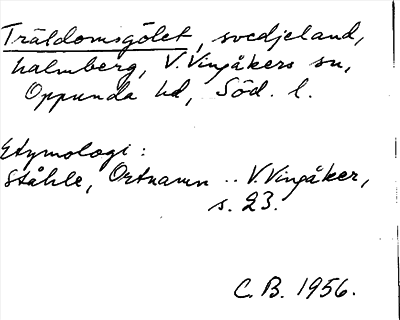 Träldomsgölet, svedjeland,
Malmberg, V. Vingåkers sn,
Oppunda hd, Söd. l.
Etymologi:
Ståhle, Ortnamn .. V. Vingåker,
s. 23.
C. B. 1956.